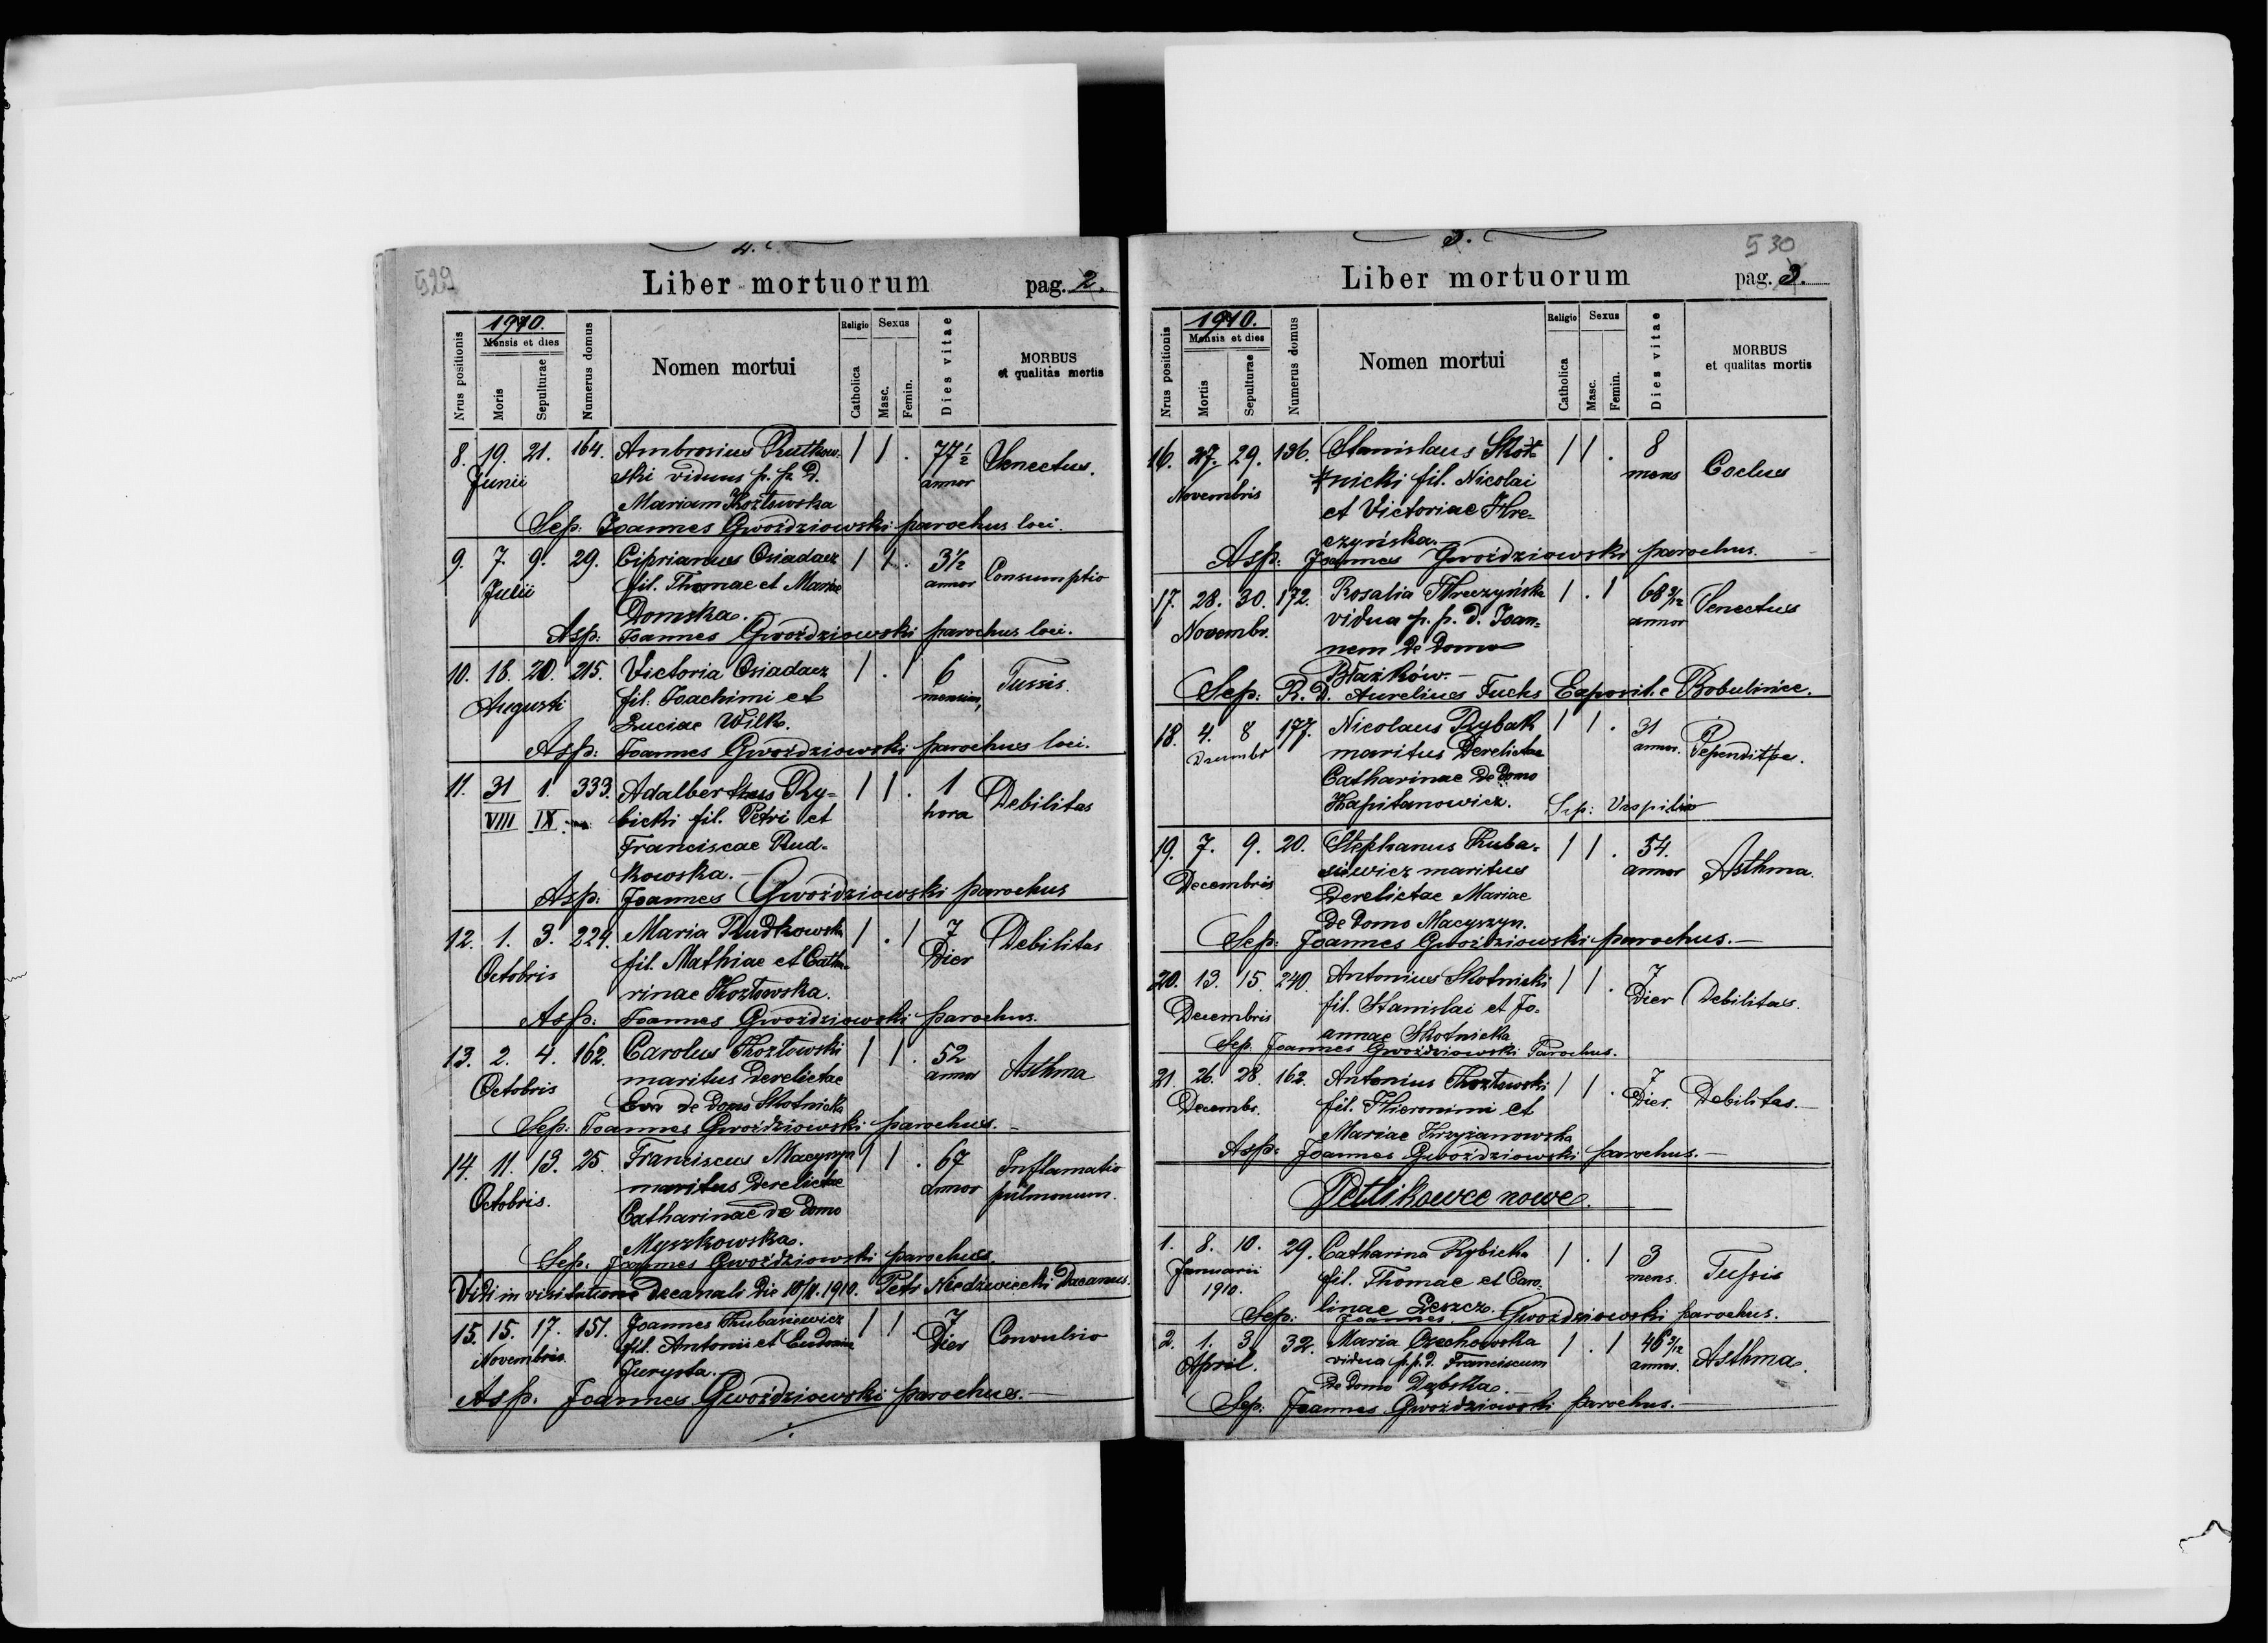 4.
529
Liber mortuorum pag. 2.
Nrus positionis
1910.
Mensis et dies
Moris
Sepulturae
Numerus domus
Nomen mortui
Religio
Catholica
Sexus
Masc.
Femin.
Dies vitae
MORBUS
et qualitas mortis
8. 19. 21. 164. Ambrosius Rutkow- 1 1 . 77 1/2 Senectus.
Junii ski viduus p. p. D. annor
Mariam Kozłowska
Sep: Joannes Gwoździowski parochus loci.
9. 7. 9. 29. Ciprianus Osiadacz 1 1 . 3 1/2 Consumptio
Julii fil. Thomae et Mariae annor
Domska.
Asp: Joannes Gwoździowski parochus loci.
10. 18. 20. 215. Victoria Osiadacz 1 . 1 6 Tussis.
Augusti fil. Joachimi et mensium,
Luciae Wilk.
Asp: Joannes Gwoździowski parochus loci.
11. 31 1. 333. Adalbertus Ry- 1 1 . 1 Debilitas
VIII IX. bicki fil. Petri et hora
Franciscae Rud-
kowska.
Asp: Joannes Gwoździowski parochus
12. 1. 3. 224. Maria Rudkowska 1 . 1 7 Debilitas
Octobris fil. Mathiae et Catha- Dier
rinae Kozłowska.
Asp: Joannes Gwoździowski parochus.
13. 2. 4. 162. Carolus Kozłowski 1 1 . 52 Asthma
Octobris maritus derelictae annor
Eva de domo Skotnicka
Sep: Joannes Gwoździowski parochus.
14. 11. 13. 25. Franciscus Macyszyn 1 1 . 67 Inflamatio
Octobris. maritus derelictae annor pulmonum.
Catharinae de domo
Myszkowska.
Sep: Joannes Gwoździowski parochus.
Vidi in visitatione Decanali die 10/11. 1910. Petr Niedźwiecki Decanus.
15. 15. 17. 151. Joannes Kubasiewicz 1 1 . 7 Convulsio
Novembris fil. Antonii et Dier
Jurysta.
Asp. Joannes Gwoździowski parochus.
3.
530
Liber mortuorum pag. 3.
Nrus positionis
1910.
Mensis et dies
Mortis
Sepulturae
Numerus domus
Nomen mortui
Religio
Catholica
Sexus
Masc.
Femin.
Dies vitae
MORBUS
et qualitas mortis
16. 27. 29. 136. Stanislaus Skot- 1 1 . 8
Novembris nicki fil. Nicolai mens
et Victoriae Hre-
czyńska.
Asp: Joannes Gwoździowski parochus.
17. 28. 30. 172. Rosalia Hreczyńska 1 . 1 68 9/12 Senectus
Novembr. vidua p. p. d. Joan- annor
nem de domo
Błażków.
Sep: R. D. Aurelius Fuchs Exposit. e Bobulińce.
18. 4. 8 177. Nicolaus Rybak 1 1 . 31
Decembr maritus derelictae annor.
Catharinae de domo
Kapitanowicz. Sep:
19. 7. 9. 20. Stephanus Kuba- 1 1 . 54. Asthma.
Decembris siewicz maritus annor
derelictae Mariae
de domo Macyszyn.
Sep: Joannes Gwoździowski parochus.
20. 13. 15. 240. Antonius Skotnicki 1 1 . 7 Debilitas.
Decembris fil. Stanislai et Jo- Dier
annae Skotnicka
Sep. Joannes Gwoździowski Parochus.
21. 26. 28. 162. Antonius Kozłowski 1 1 . 7 Debilitas.
Decembr. fil. Hieronimi et Dier.
Mariae Krzyżanowska
Asp: Joannes Gwoździowski parochus.
Petlikowce nowe.
1. 8. 10. 29. Catharina Rybicka 1 . 1 3 Tussis
Januarii fil. Thomae et Caro- mens.
1910. linae Leszcz.
Sep: Joannes Gwoździowski parochus.
2. 1. 3. 32. Maria Orzechowska 1 . 1 46 9/12 Asthma.
April. vidua p. p. d. Franciscum annor.
de domo Dąbska.
Sep: Joannes Gwoździowski parochus.